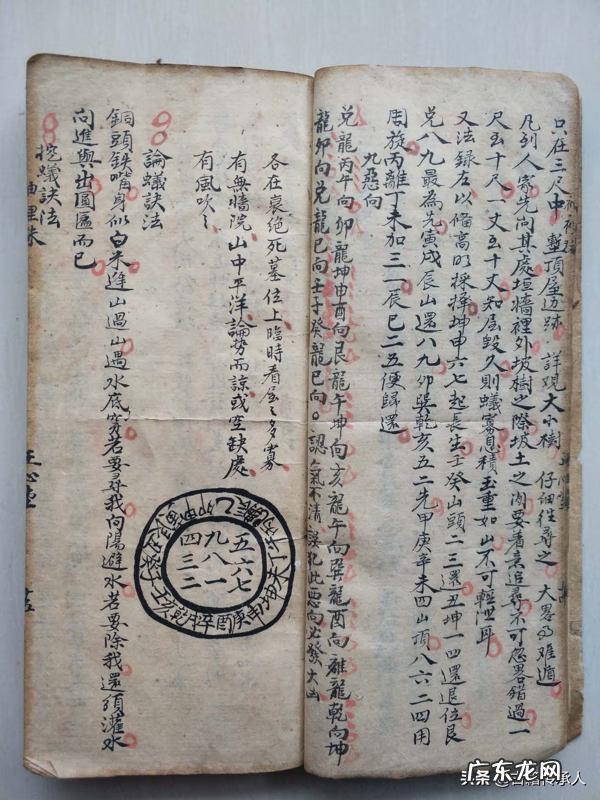 只在三尺中 塹頂屋边跡 詳观大小樹 仔細徃尋之 大畧乃难遁
凡到人家先向其處垣墻裡外坡樹之際坡土之润要着意追尋不可忽畧錯過一
尺至十尺一丈至十丈知屋毀久則蟻窩息積玉重如山不可輕泄耳
又法録在左以俻高明採擇坤申六七起長生壬癸山頭二三還丑坤一四還退位艮
兑八九最為先寅戌辰山還八九卯巽乾亥五二先甲庚辛未四山頂八六二四用
周旋丙離丁未加三一辰巳二五便歸還
九惡向
兑龍丙午向卯龍坤申酉向艮龍午坤向亥龍午向巽龍酉向離龍乾向坤
龍卯向兑龍巳向壬子癸龍巳向。認氣不清誤犯此惡向必發大凶
各在衰絶死墓位上臨時看屋之多寡
有無墻院山中平洋論勢而諒或空缺處
有風吹
五六七
九八一
四三二
論蟻訣法
銅頭鉄嘴身似白米進山過山遇水底窩若要尋我向陽避水若要除我還須灌水
向進與出圓匾而已
挖蟻訣法
头条@古籍传承人
广东龙网